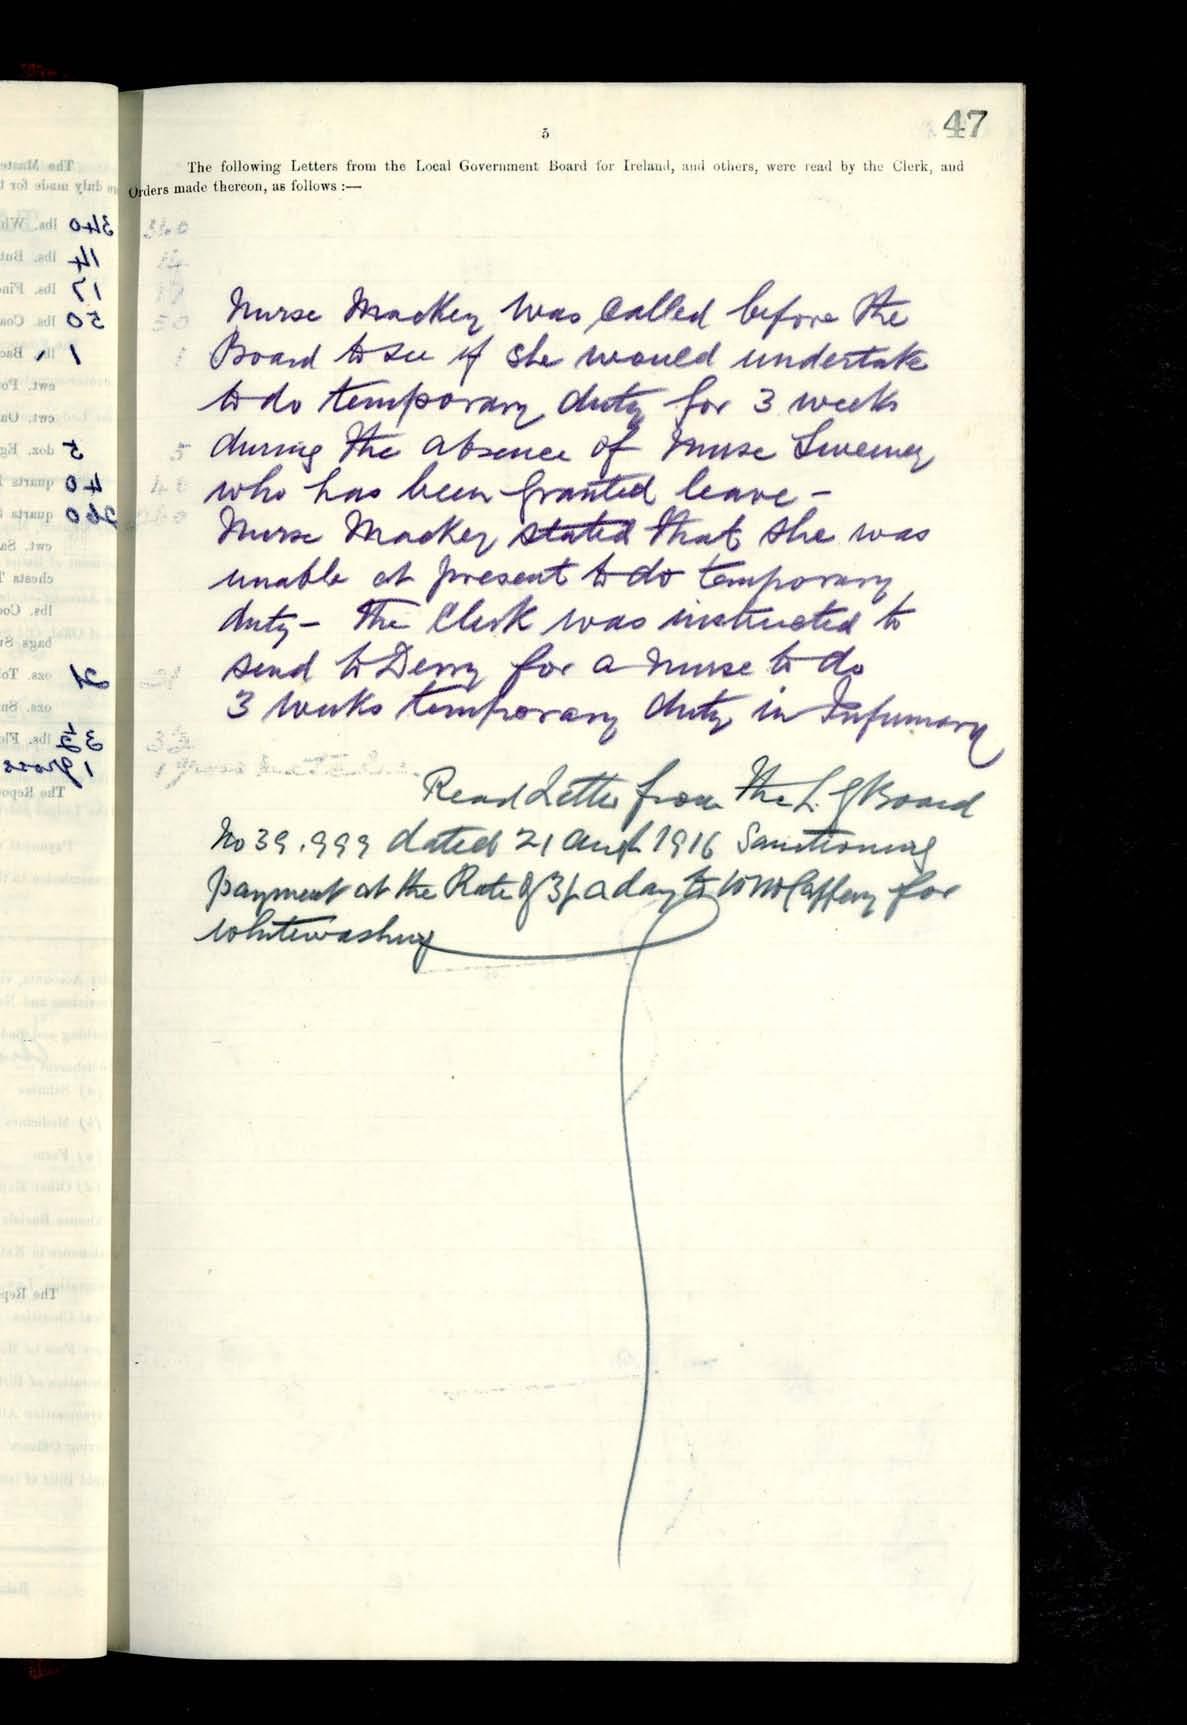 47
5
The following Letters from the Local Government Board for Ireland, and others, were read by the Clerk, and
Orders made thereon, as follows :—
Nurse Mackey was called before the
Board to see if she would undertake
to do temporary duty for 3 weeks
during the absence of Nurse Sweeney
who has been granted leave -
Nurse Mackey stated that she was
unable at present to do temporary
duty - The Clerk was instructed to
send to Derry for a nurse to do
3 weeks temporary duty in Infirmary
Read Letter from the L. G Board
No 39.999 dated 21 Augt 1916 Sanctioning
payment at the Rate of 3/- a day to W McCaffery for
whitewashing